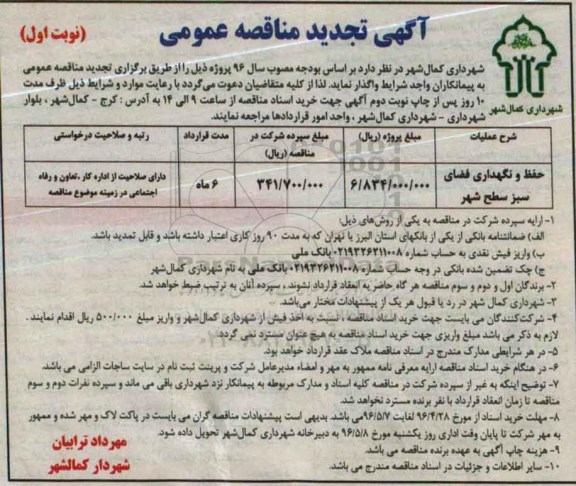 آگهی تجدید مناقصه عمومی
(نوبت اول)
شهرداری کمال‌شهر
شهرداری کمال‌شهر در نظر دارد بر اساس بودجه مصوب سال ۹۶ پروژه ذیل را از طریق برگزاری تجدید مناقصه عمومی
به پیمانکاران واجد شرایط واگذار نماید. لذا از کلیه متقاضیان دعوت می‌گردد با رعایت موارد و شرایط ذیل ظرف مدت
۱۰ روز پس از چاپ نوبت دوم آگهی جهت خرید اسناد مناقصه از ساعت ۹ الی ۱۴ به آدرس : کرج - کمال‌شهر ، بلوار
شهرداری - شهرداری کمال‌شهر ، واحد امور قراردادها مراجعه نمایند.
شرح عملیات
مبلغ پروژه (ریال)
مبلغ سپرده شرکت در مناقصه (ریال)
مدت قرارداد
رتبه و صلاحیت درخواستی
حفظ و نگهداری فضای سبز سطح شهر
۶/۸۳۴/۰۰۰/۰۰۰
۳۴۱/۷۰۰/۰۰۰
۶ ماه
دارای صلاحیت از اداره کار ،تعاون و رفاه اجتماعی در زمینه موضوع مناقصه
۱- ارایه سپرده شرکت در مناقصه به یکی از روش‌های ذیل:
الف) ضمانتنامه بانکی از یکی از بانکهای استان البرز یا تهران که به مدت ۹۰ روز کاری اعتبار داشته باشد و قابل تمدید باشد.
ب) واریز فیش نقدی به حساب شماره ۰۲۱۹۳۲۶۲۱۱۰۰۸ بانک ملی
ج) چک تضمین شده بانکی در وجه حساب شماره ۰۲۱۹۳۲۶۲۱۱۰۰۸ بانک ملی به نام شهرداری کمال‌شهر
۲- برندگان اول و دوم و سوم مناقصه هر گاه حاضر به انعقاد قرارداد نشوند ، سپرده آنان به ترتیب ضبط خواهد شد.
۳- شهرداری کمال شهر در رد یا قبول هر یک از پیشنهادات مختار می‌باشد.
۴- شرکت‌کنندگان می بایست جهت خرید اسناد مناقصه ، نسبت به اخذ فیش از شهرداری کمال‌شهر و واریز مبلغ ۵۰۰/۰۰۰ ریال اقدام نمایند .
لازم به ذکر می باشد مبلغ واریزی جهت خرید اسناد مناقصه به هیچ عنوان مسترد نمی گردد.
۵- در هر شرایطی مدارک مندرج در اسناد مناقصه ملاک عقد قرارداد خواهد بود.
۶- در هنگام خرید اسناد مناقصه ارایه معرفی نامه ممهور به مهر و امضاء مدیرعامل شرکت و پرینت ثبت نام در سایت ساجات الزامی می باشد.
۷- توضیح اینکه به غیر از سپرده شرکت در مناقصه کلیه اسناد و مدارک مربوطه به پیمانکار نزد شهرداری باقی می ماند و سپرده نفرات دوم و سوم
مناقصه تا زمان انعقاد قرارداد با نفر برنده مسترد نخواهد شد.
۸- مهلت خرید اسناد از مورخ ۹۶/۴/۲۸ لغایت ۹۶/۵/۷ می باشد. بدیهی است پیشنهادات مناقصه گران می بایست در پاکت لاک و مهر شده و ممهور
به مهر شرکت تا پایان وقت اداری روز یکشنبه مورخ ۹۶/۵/۸ به دبیرخانه شهرداری کمال‌شهر تحویل داده شود.
۹- هزینه چاپ آگهی به عهده برنده مناقصه می باشد.
۱۰- سایر اطلاعات و جزئیات در اسناد مناقصه مندرج می باشد.
مهرداد ترابیان
شهردار کمالشهر